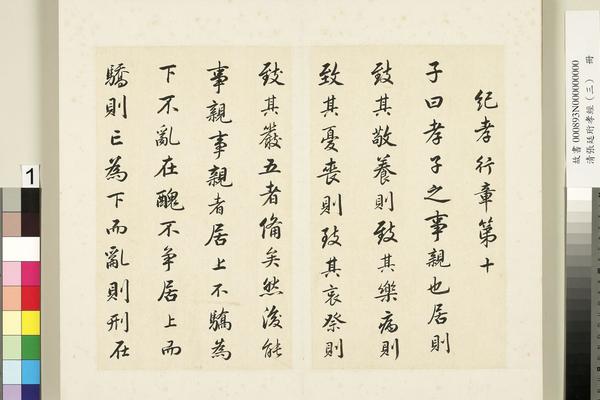 紀孝行章第十
子曰孝子之事親也居則
致其敬養則致其樂病則
致其憂喪則致其哀祭則
致其嚴五者備矣然後能
事親事親者居上不驕為
下不亂在醜不争居上而
驕則亡為下而亂則刑在
清張廷珩孝經（三） 冊
故書 000893N000000000
1